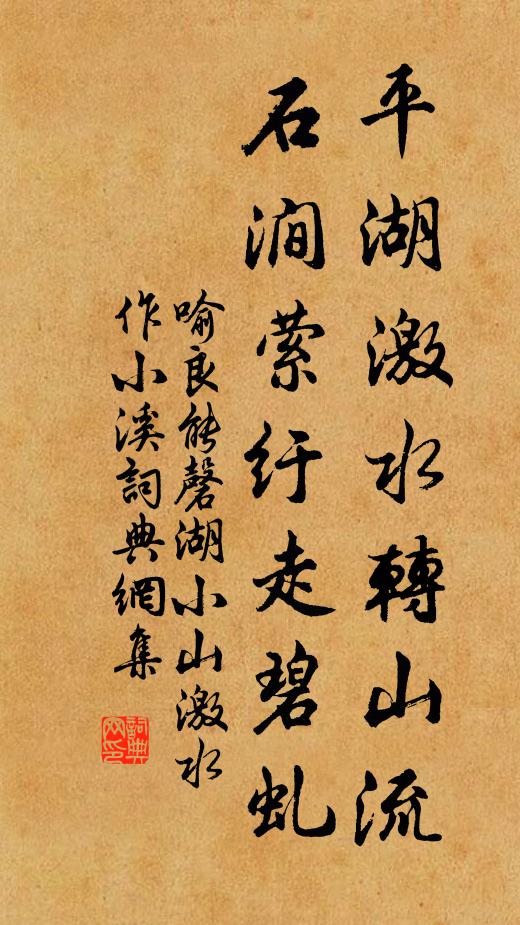 平湖激水轉山流
石澗萦紆走碧虬
喻良能磬湖小山激水
作小溪詞典網集
詞典网印